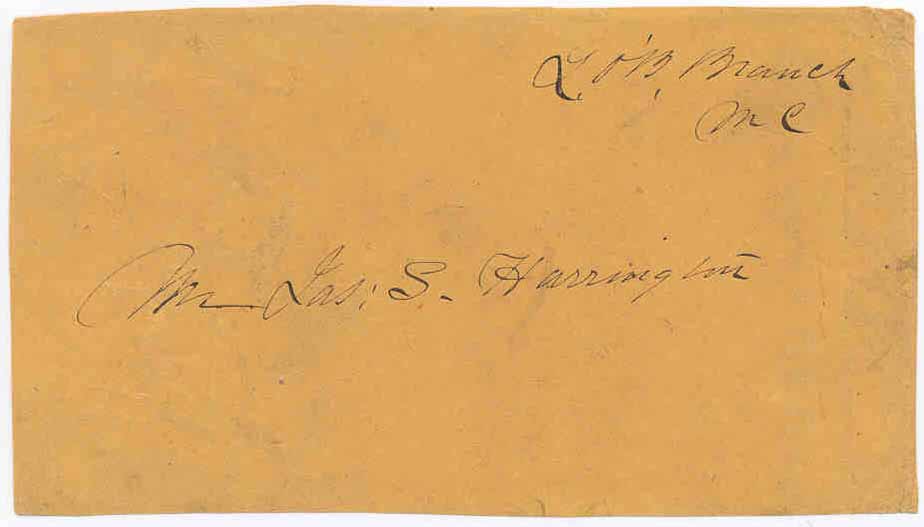 L. O'B. Branch
M C
Mr Jas: S. Harrington